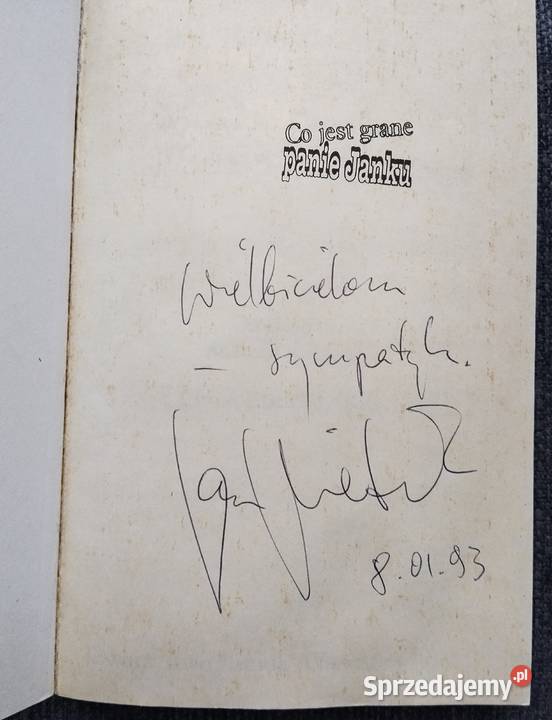 Co jest grane
panie Janku
Wielbicielom
– sympatyk.
Jan
8.01.93
Sprzedajemy.pl